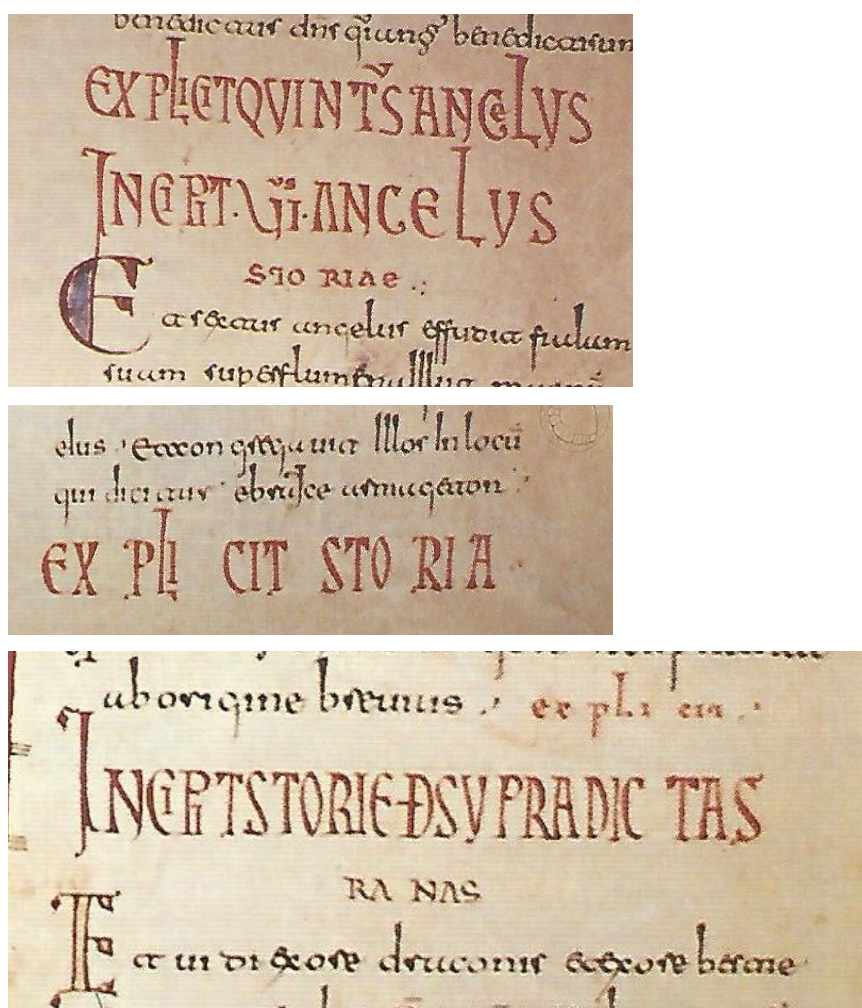 benedicatur dns quinq; benedicatsun
EXPLICIT QVINTS ANGELVS
INCIPIT·VIus·ANGELVS
STORIAE
Et sextus angelus effudit fiulum
suam super flumen illut magnū
elus · Et congregauit Illos In locū
qui dicitur ebrayce armageton
EXPLICIT STORIA
ab origine bestius explicit
INCIPIT STORIE DSVPRADICTAS
RANAS
Et uidi ex ore draconis et ex ore bestie